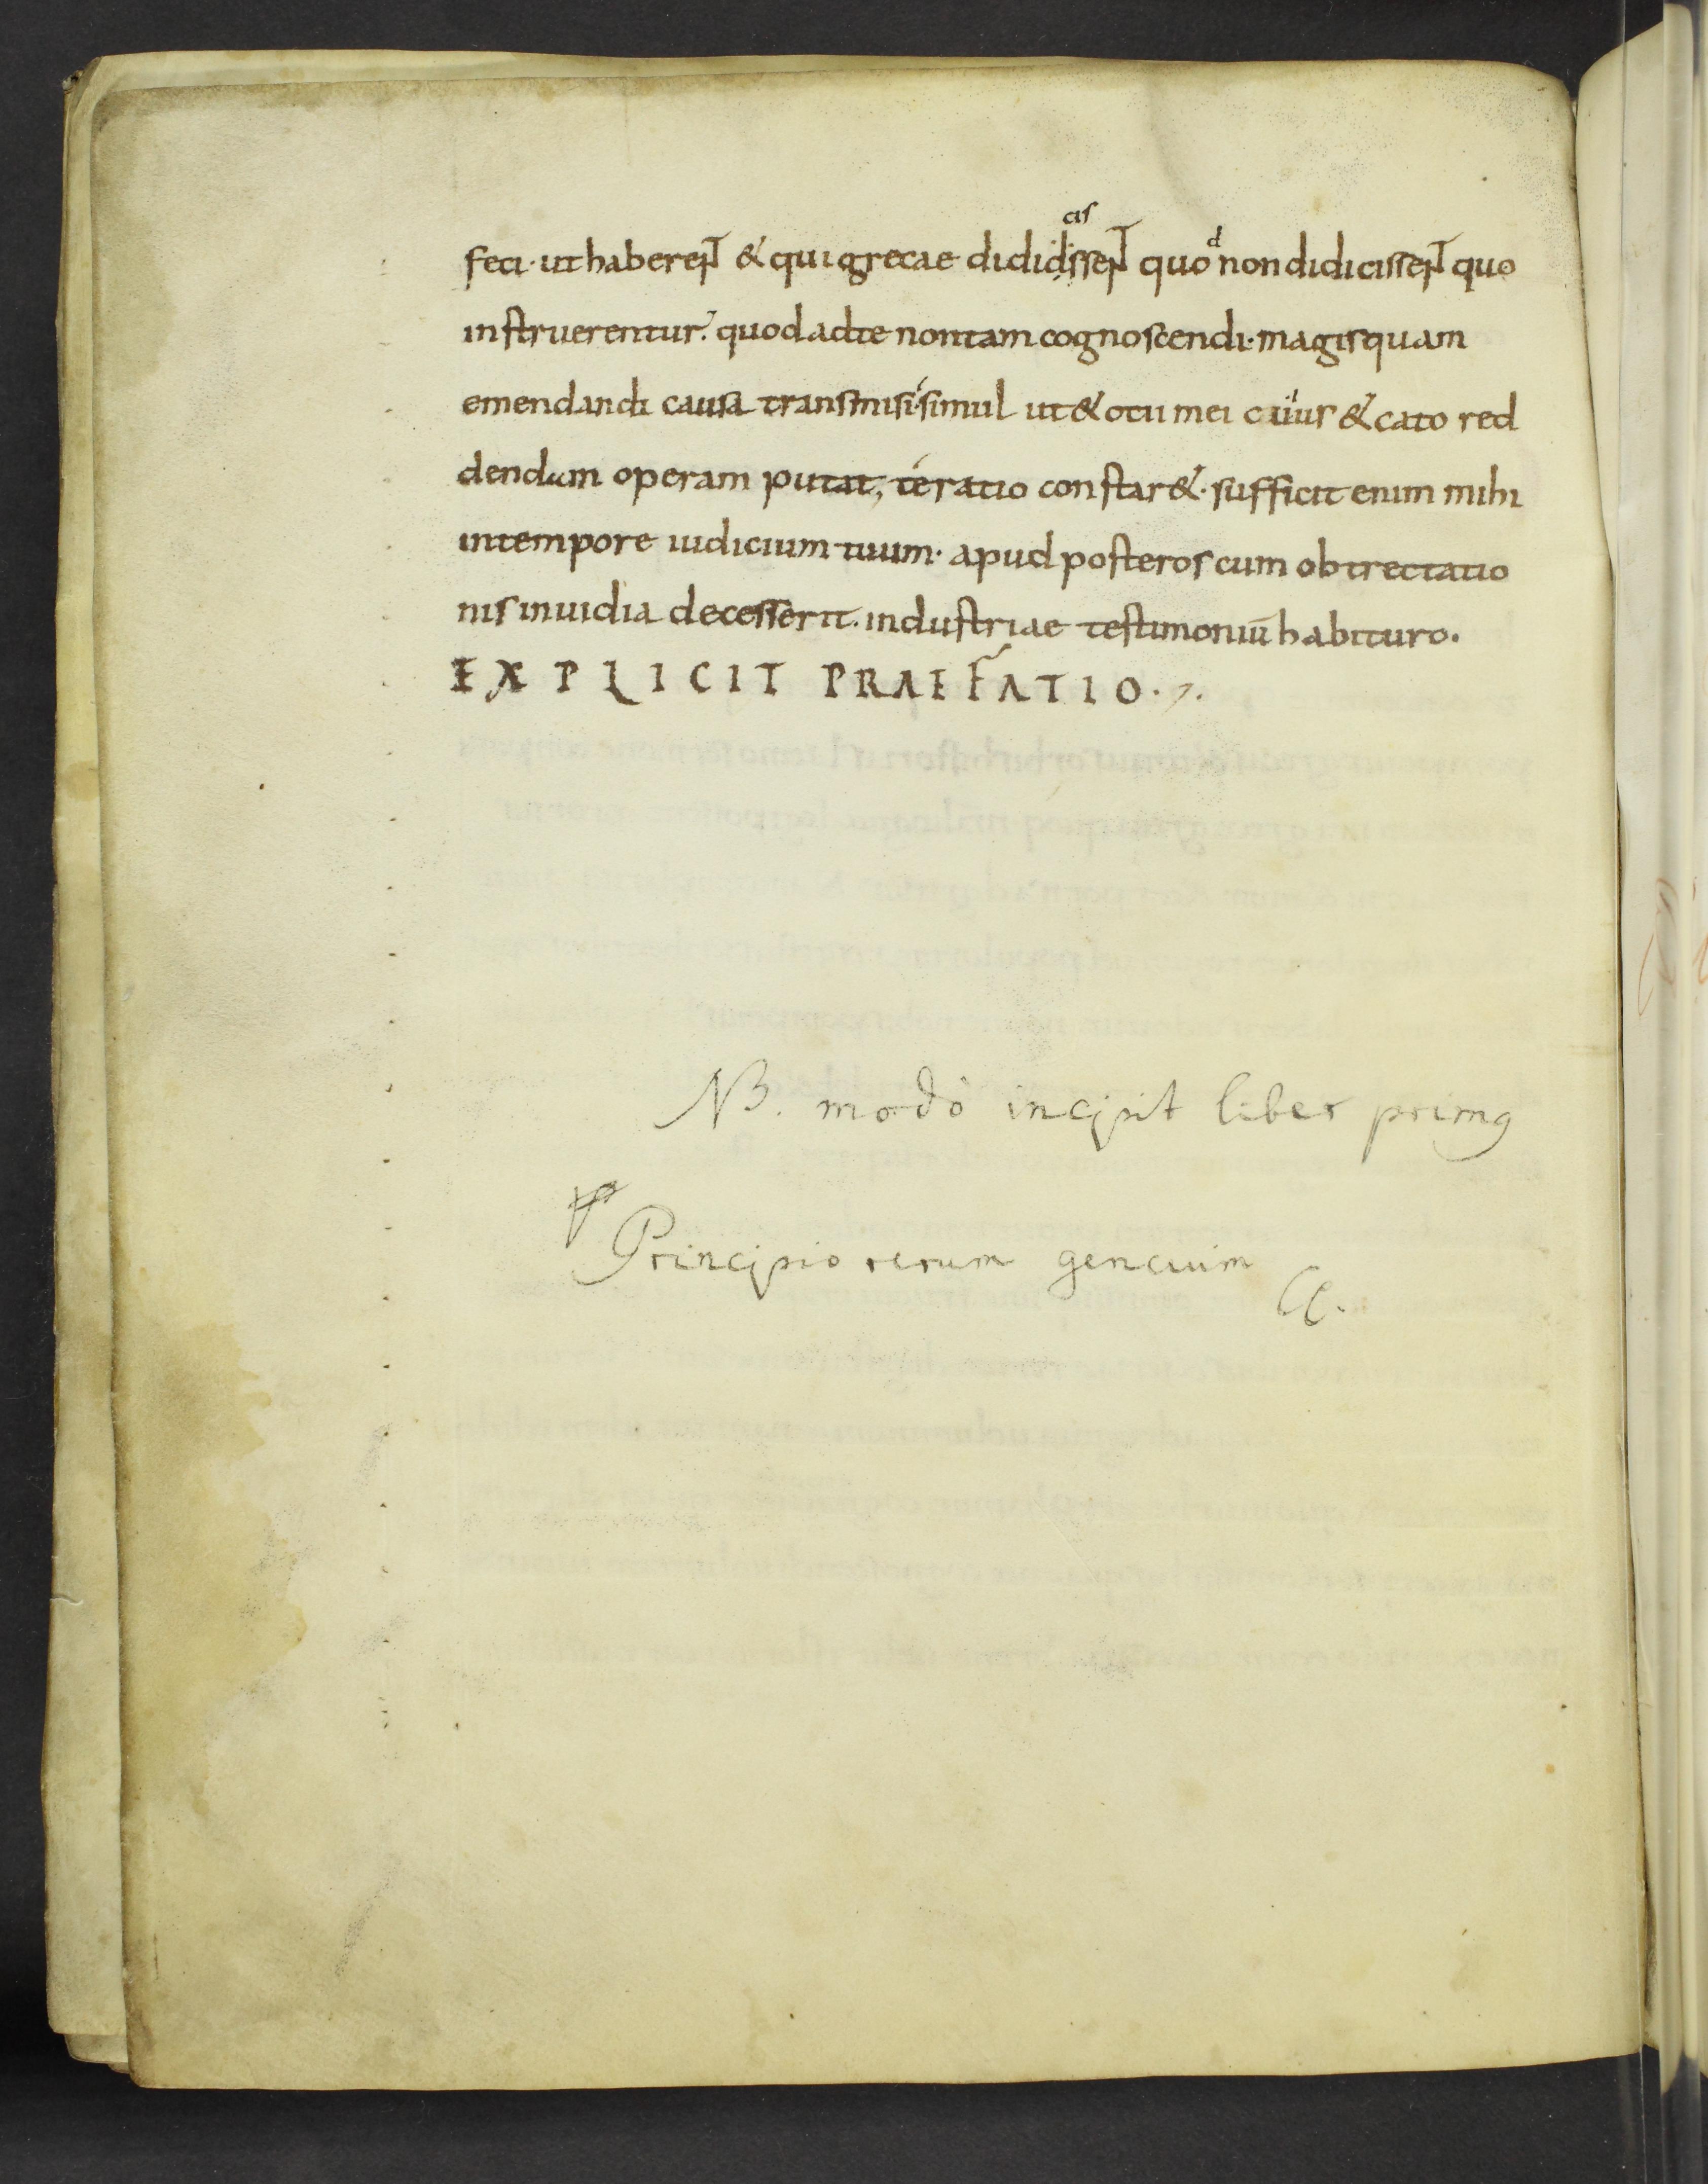 feci· ut haberent & qui grecae didid^cis^ssent quo^d^ non didicissent quo
instruerentur. quod adte nontam cognoscendi· magisquam
emendandi causa transmisi· simul ut & otii mei cuius & cato red
dendam operam putat, te ratio constar&· sufficit enim mihi
intempore iudicium tuum· apud posteros cum obtrectatio
nis inuidia decesserit· industriae testimoniū habituro.
EXPLICIT PRAEFATIO.
NB. modò incipit liber primꝰ
Principio rerum genciuim